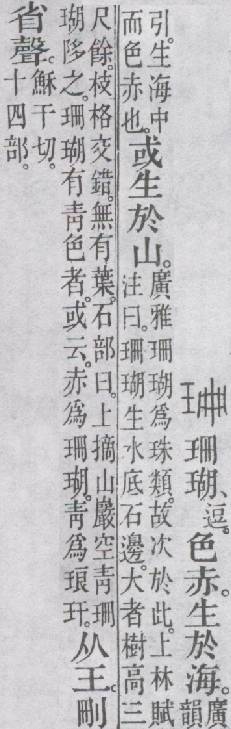 珊 珊瑚、逗。色赤。生於海。廣韻
引。生海中
而色赤也。
或生於山。
廣雅珊瑚爲珠類。故次於此。上林賦
注曰。珊瑚生水底石邊。大者樹高三
尺餘。枝格交錯。無有葉。石部曰。上摘山巖空靑珊
瑚陊之。珊瑚有靑色者。或云。赤爲珊瑚。靑爲琅玕。
从王。刪
省聲。
穌干切。
十四部。